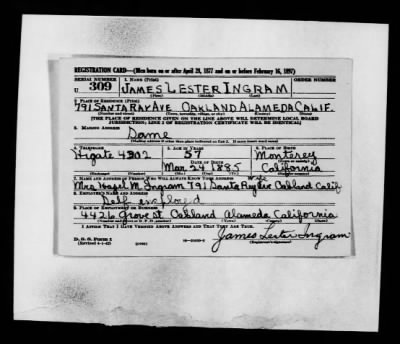 REGISTRATION CARD—(Men born on or after April 28, 1877 and on or before February 16, 1897)
SERIAL NUMBER 1. NAME (Print) ORDER NUMBER
U 309 JAMES LESTER INGRAM
(First) (Middle) (Last)
2. PLACE OF RESIDENCE (Print)
791 SANTA RAY AVE OAKLAND ALAMEDA CALIF.
(Number and street) (Town, township, village, or city) (County) (State)
[THE PLACE OF RESIDENCE GIVEN ON THE LINE ABOVE WILL DETERMINE LOCAL BOARD
JURISDICTION; LINE 2 OF REGISTRATION CERTIFICATE WILL BE IDENTICAL]
3. MAILING ADDRESS
Same
[Mailing address if other than place indicated on line 2. If same insert word same]
4. TELEPHONE 5. AGE IN YEARS 6. PLACE OF BIRTH
Higate 4302 57 Monterey
DATE OF BIRTH (Town or county)
Mar. 24 1885 California
(Exchange) (Number) (Mo.) (Day) (Yr.) (State or country)
7. NAME AND ADDRESS OF PERSON WHO WILL ALWAYS KNOW YOUR ADDRESS
Mrs Hazel M. Ingram 791 Santa Ray Ave Oakland Calif
8. EMPLOYER'S NAME AND ADDRESS
Self employed
9. PLACE OF EMPLOYMENT OR BUSINESS
4426 Grove St Oakland Alameda California
(Number and street or R. F. D. number) (Town) (County) (State)
I AFFIRM THAT I HAVE VERIFIED ABOVE ANSWERS AND THAT THEY ARE TRUE.
D. S. S. Form 1
(Revised 4-1-42) (over)
James Lester Ingram
(Registrant's signature)